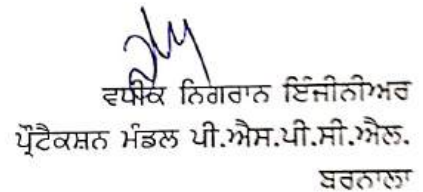 ਵਧੀਕ ਨਿਗਰਾਨ ਇੰਜੀਨੀਅਰ
ਪ੍ਰੋਟੈਕਸ਼ਨ ਮੰਡਲ ਪੀ.ਐਸ.ਪੀ.ਸੀ.ਐਲ.
ਬਰਨਾਲਾ